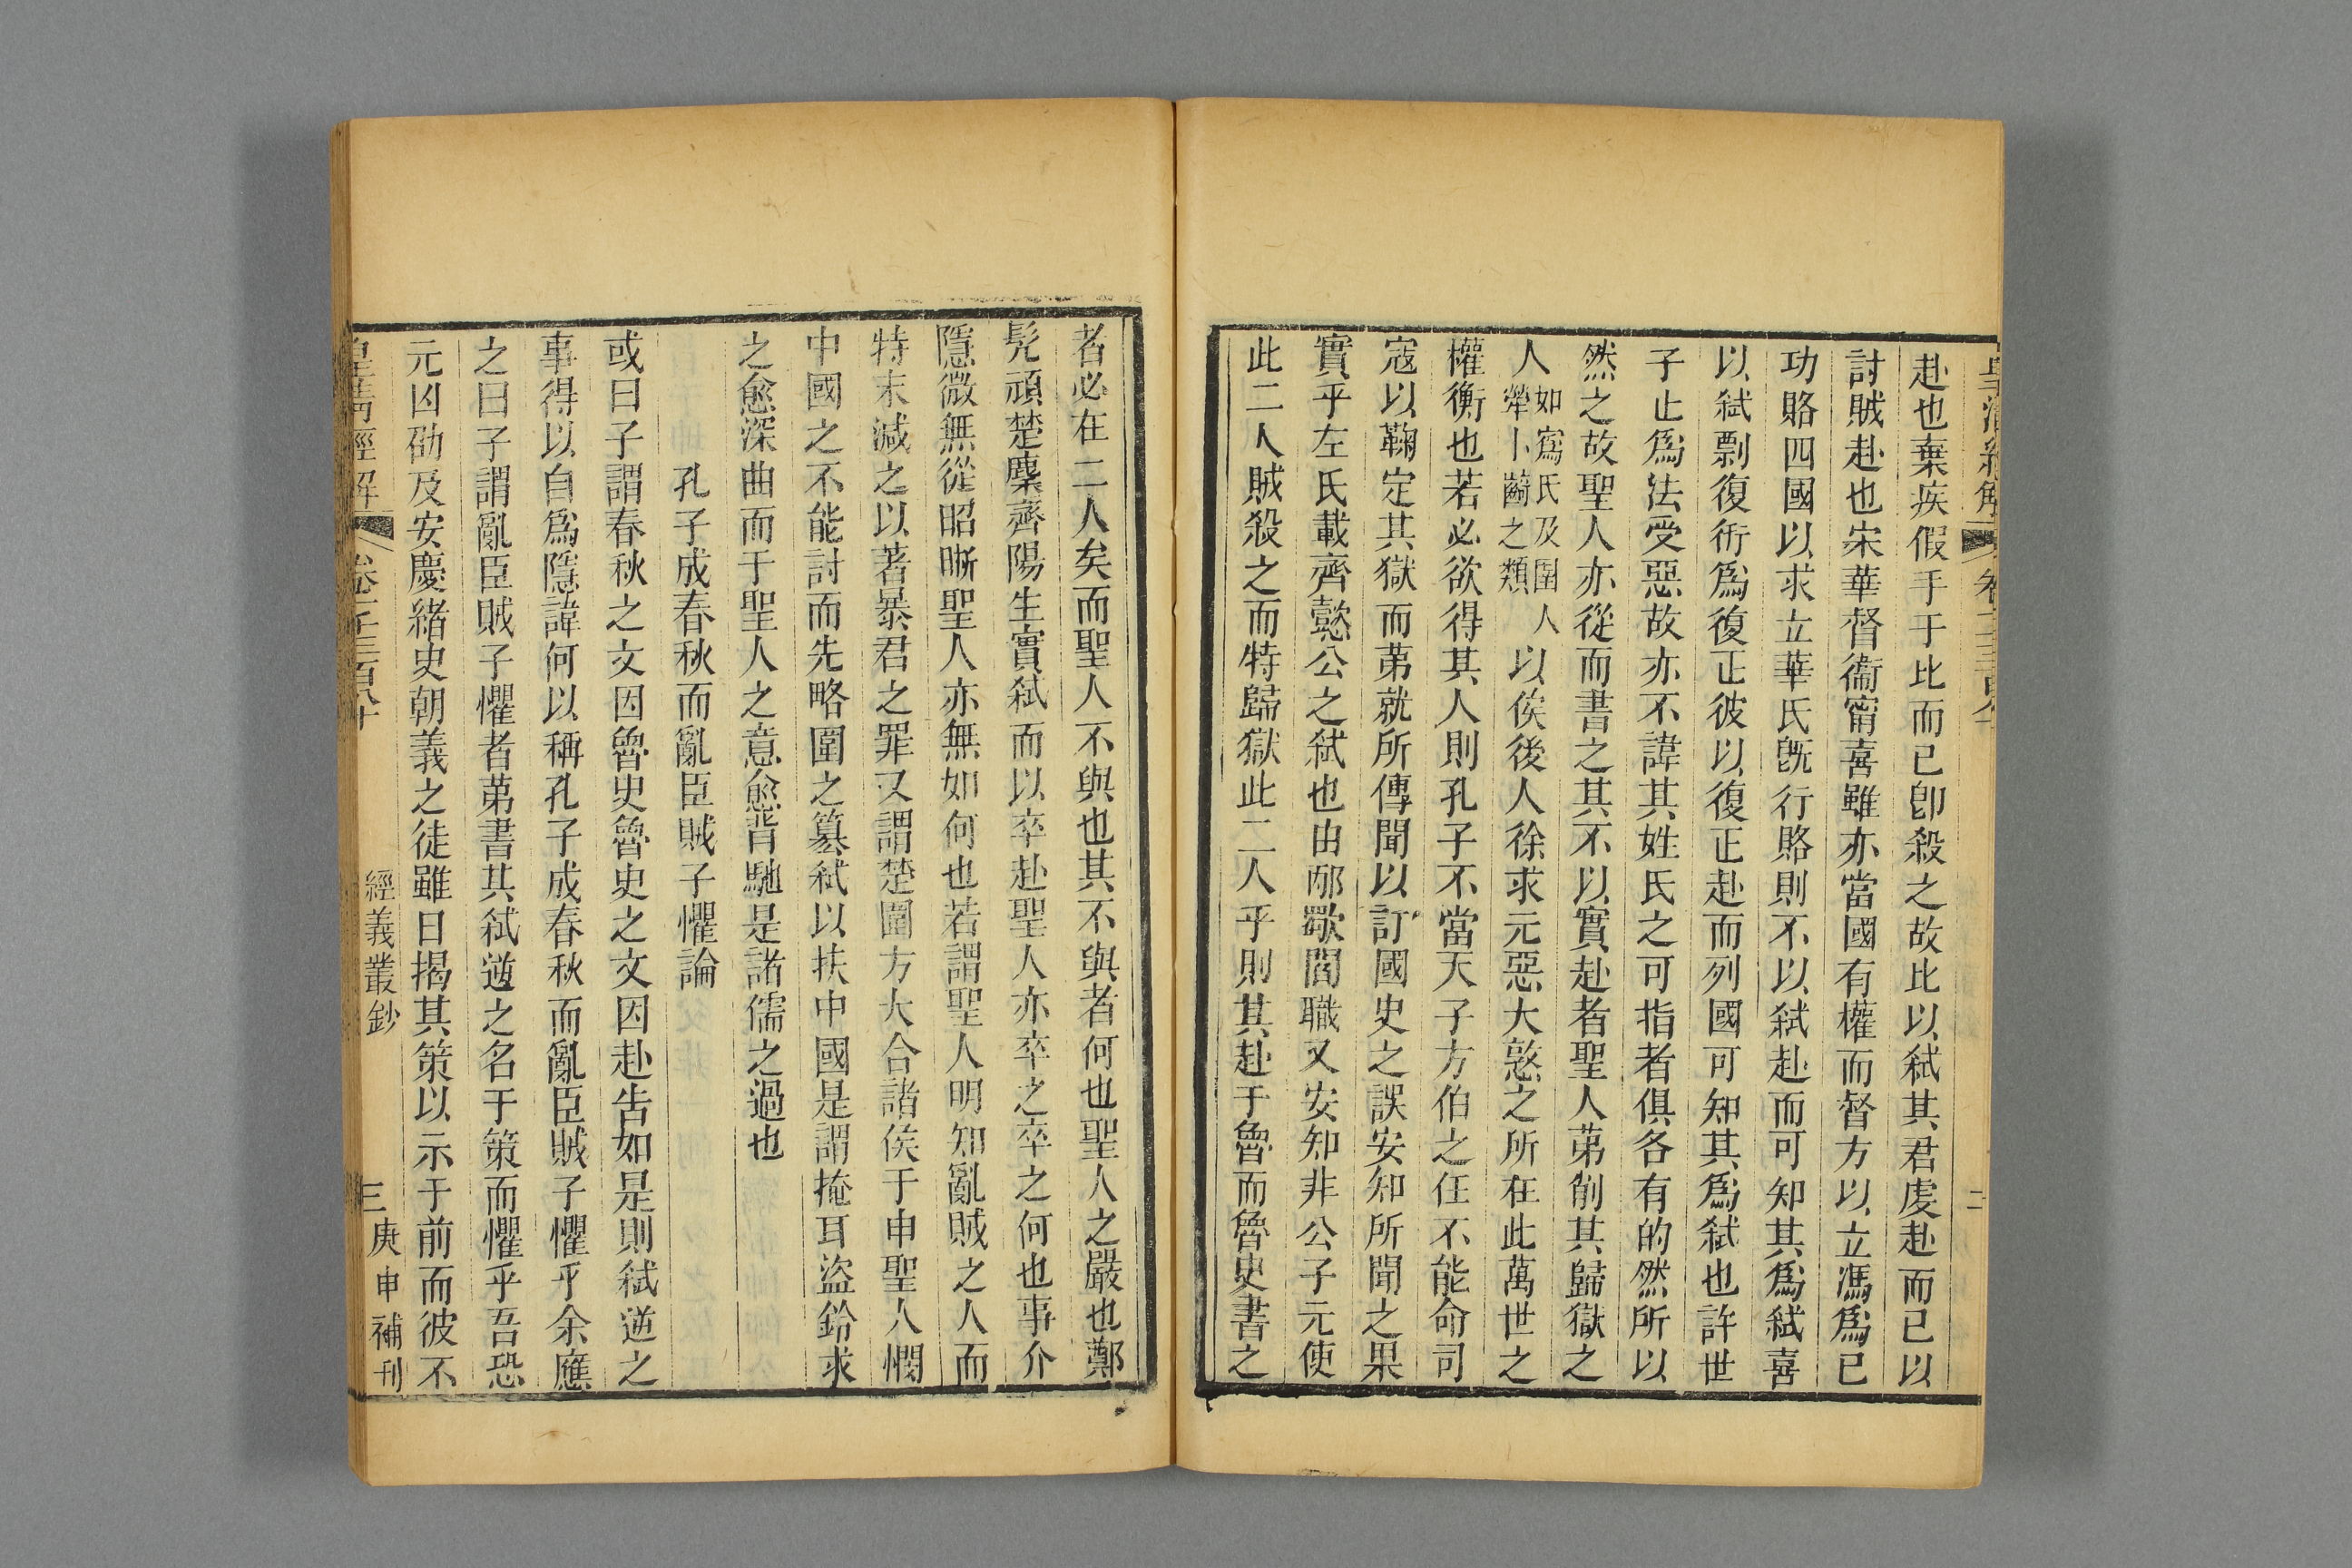 皇清經解
卷一千三百八十
二
赴也棄疾假手于比而已卽殺之故比以弑其君虔赴而已以
討賊赴也宋華督衞甯喜雖亦當國有權而督方以立馮爲已
功賂四國以求立華氏旣行賂則不以弑赴而可知其爲弑喜
以弑剽復衎爲復正彼以復正赴而列國可知其爲弑也許世
子止爲法受惡故亦不諱其姓氏之可指者俱各有的然所以
然之故聖人亦從而書之其不以實赴者聖人苐削其歸獄之
人如寫氏及圉人犖卜齮之類以俟後人徐求元惡大憝之所在此萬世之
權衡也若必欲得其人則孔子不當天子方伯之任不能命司
寇以鞠定其獄而苐就所傳聞以訂國史之誤安知所聞之果
實乎左氏載齊懿公之弑也由邴歜閻職又安知非公子元使
此二人賊殺之而特歸獄此二人乎則其赴于魯而魯史書之
者必在二人矣而聖人不與也其不與者何也聖人之嚴也鄭
髠頑楚麇齊陽生實弑而以卒赴聖人亦卒之卒之何也事介
隱微無從昭晰聖人亦無如何也若謂聖人明知亂賊之人而
特末減之以著暴君之罪又謂楚圍方大合諸侯于申聖人憫
中國之不能討而先略圍之簒弑以扶中國是謂掩耳盜鈴求
之愈深曲而于聖人之意愈背馳是諸儒之過也
孔子成春秋而亂臣賊子懼論
或曰子謂春秋之文因魯史魯史之文因赴告如是則弑逆之
事得以自爲隱諱何以稱孔子成春秋而亂臣賊子懼乎余應
之曰子謂亂臣賊子懼者苐書其弑逆之名于策而懼乎吾恐
元凶劭及安慶緒史朝義之徒雖日揭其策以示于前而彼不
皇淸經解
卷一千三百八十
經義叢鈔
三
庚申補刊